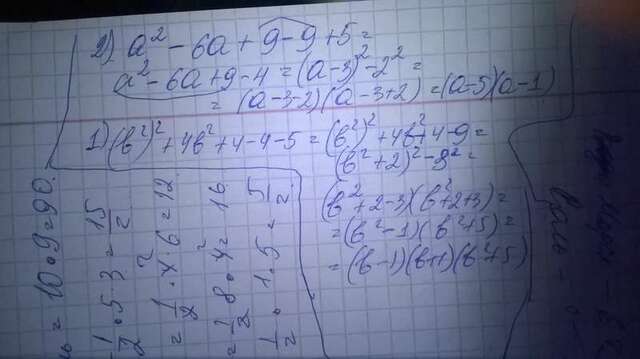 2) a² - 6a + 9 - 9 + 5 =
a² - 6a + 9 - 4 = (a-3)² - 2² =
= (a-3-2)(a-3+2) = (a-5)(a-1)
1) (b²)² + 4b² + 4 - 4 - 5 = (b²)² + 4b² + 4 - 9 =
(b² + 2)² - 3² =
(b² + 2 - 3)(b² + 2 + 3) =
= (b² - 1)(b² + 5) =
= (b - 1)(b + 1)(b² + 5)
= 10 · 9 = 90.
1/2 · 5 · 3 = 15/2
= 1/2 · 4 · 6 = 12
= 1/2 · 8 · 4 = 16
1/2 · 1 · 5 = 5/2